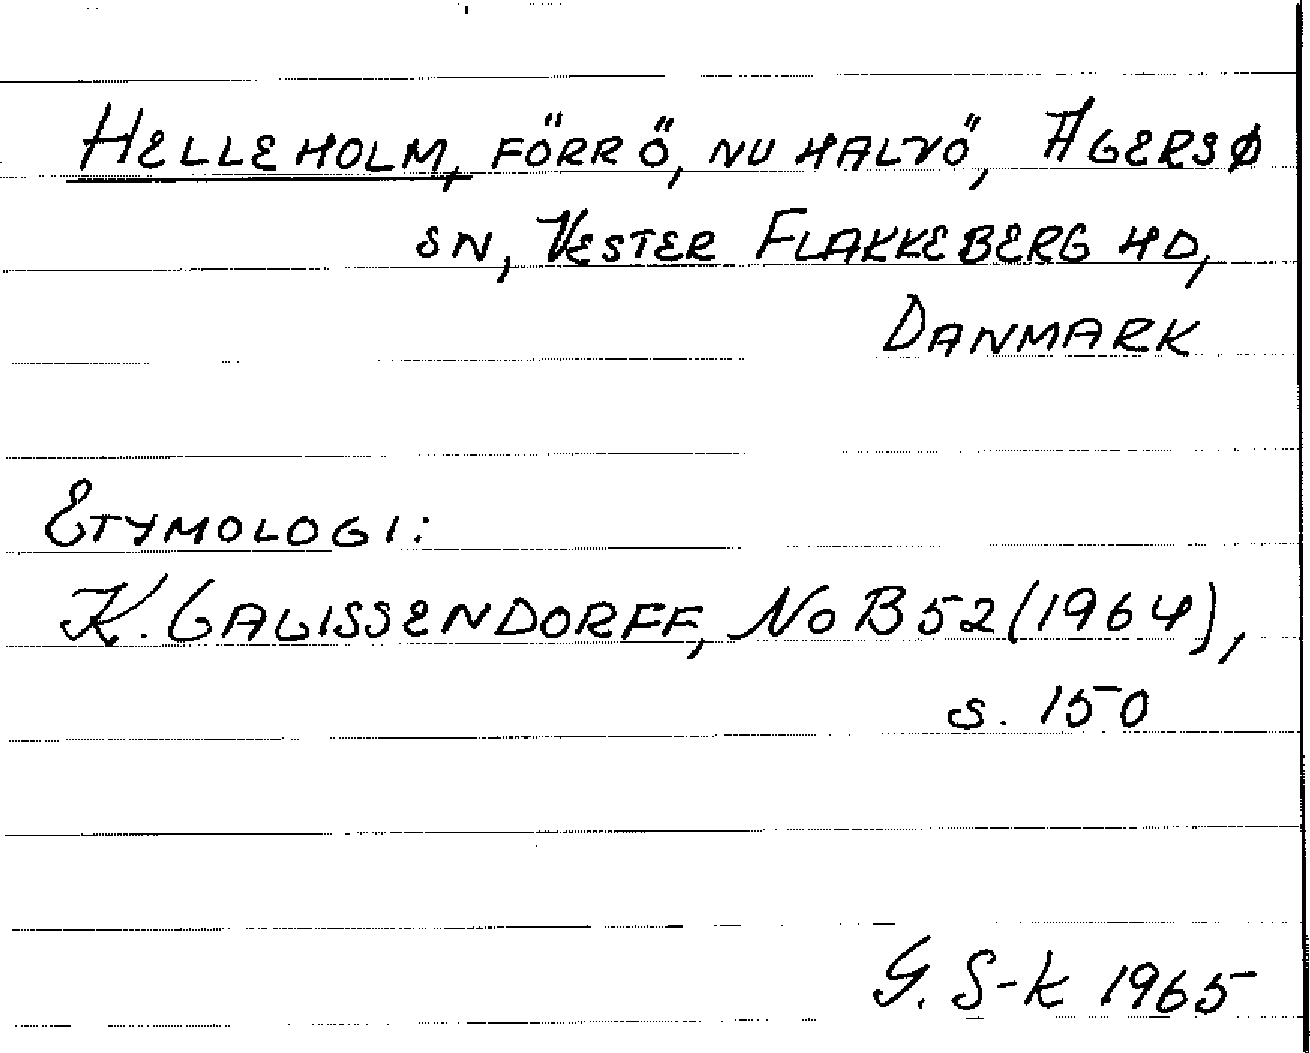 HELLEHOLM, FÖRR Ö, NU HALVÖ, AGERSØ
SN, VESTER FLAKKEBERG HD,
DANMARK
ETYMOLOGI:
K. GALISSENDORFF, NoB 52 (1964),
s. 150
G. S-k 1965